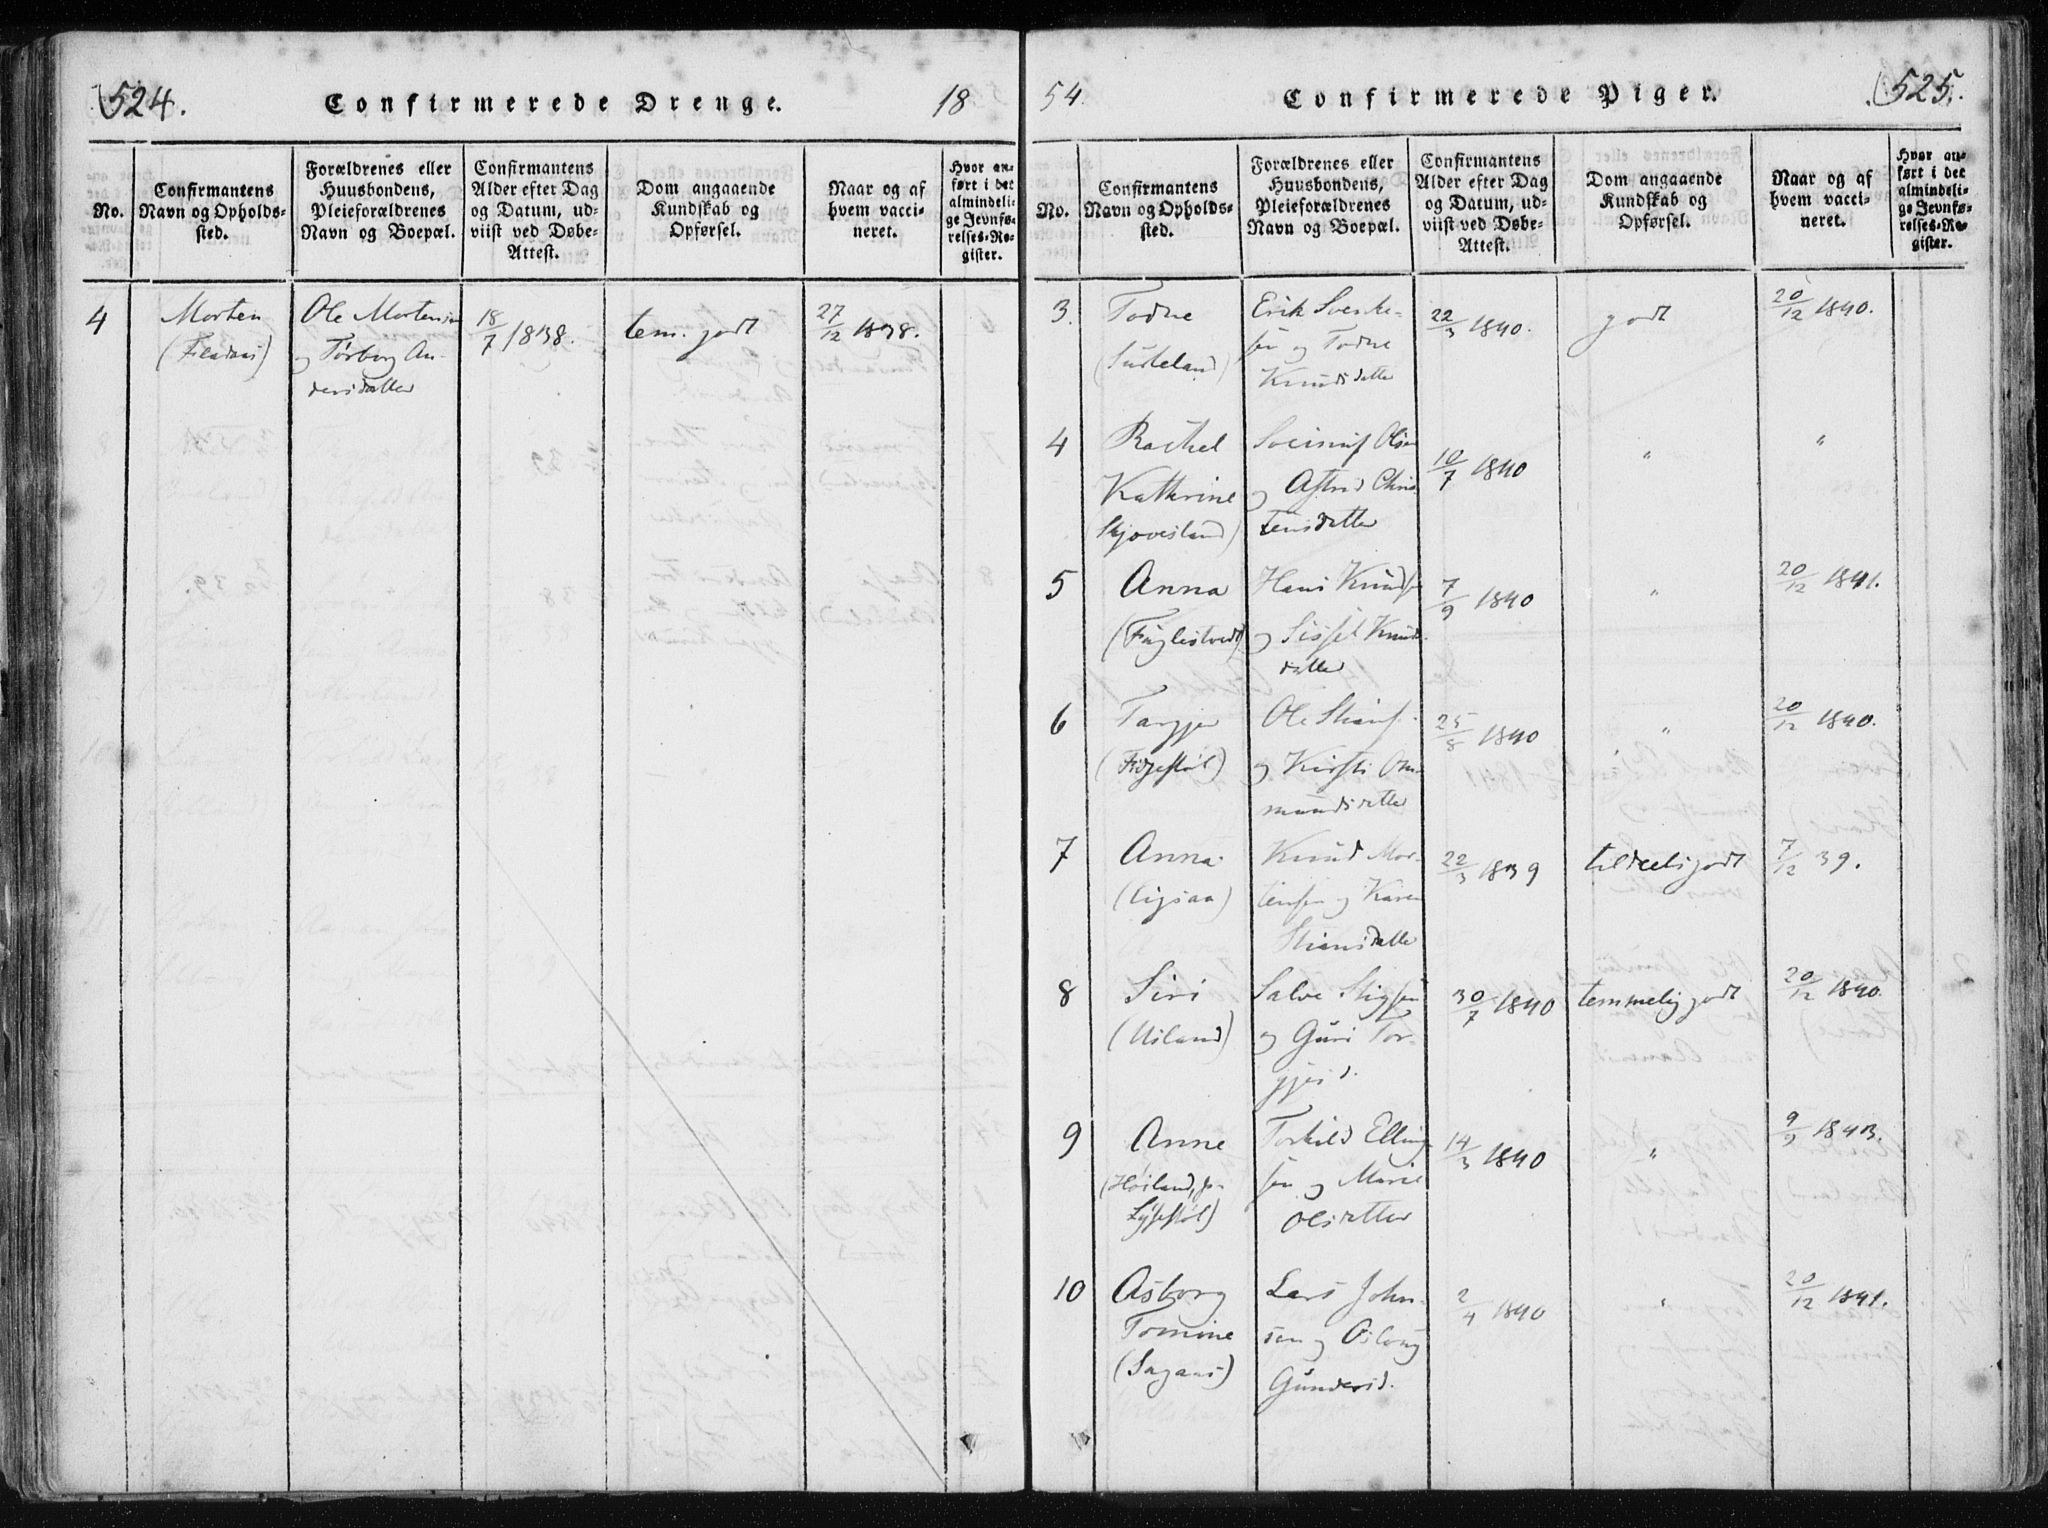 524.
Confirmerede Drenge.
18
No.
Confirmantens
Navn og Opholds-
sted.
Forældrenes eller
Huusbondens,
Pleieforældrenes
Navn og Boepæl.
Confirmantens
Alder efter Dag
og Datum, ud-
viist ved Døbe-
Attest.
Dom angaaende
Kundskab og
Opførsel.
Naar og af
hvem vacci-
neret.
Hvor an-
ført i det
almindeli-
ge Jevnfø-
relses-Re-
gister.
4
Morten
Ole Mortensen
og Tørborg An-
dersdatter
18/7 1838.
tem. godt
27/12 1838.
54.
Confirmerede Piger.
525.
No.
Confirmantens
Navn og Opholds-
sted.
Forældrenes eller
Huusbondens,
Pleieforældrenes
Navn og Boepæl.
Confirmantens
Alder efter Dag
og Datum, ud-
viist ved Døbe-
Attest.
Dom angaaende
Kundskab og
Opførsel.
Naar og af
hvem vacci-
neret.
Hvor an-
ført i det
almindeli-
ge Jevnfø-
relses-Re-
gister.
3.
Todne
Erik Svenke-
sen og Todne
Knudsdatter
22/3 1840.
godt
20/12 1840.
4
Rachel
Kathrine
(Skjovesland)
Olsen
og Astrid Chris
tensdatter
10/7 1840
"
"
5
Anna
(Fuglestvedt)
Hans Knuds
og Sissel Knuds
datter
7/9 1840
"
20/12 1841.
6
Targjer
Ole
og Kirsti Om-
mundsdatter
25/8 1840
"
20/12 1840.
7
Anna
(Ligsaa)
Knud Mor-
tensen og Karen
Stiansdatter
22/3 1839
tildeels godt
7/12 39.
8
Siri
(Usland)
Salve Stigsen
og Guri Tor-
gjesd.
30/7 1840
temmelig godt
20/12 1840.
9
Anne
(Høiland,
Lysestøl)
Torkild Elling
sen og Marie
Olsdatter
14/3 1840
"
9/9 1843.
10
Asborg
Tomine
Lars John-
sen og Aslaug
Gundersd.
2/4 1840
"
20/12 1841.